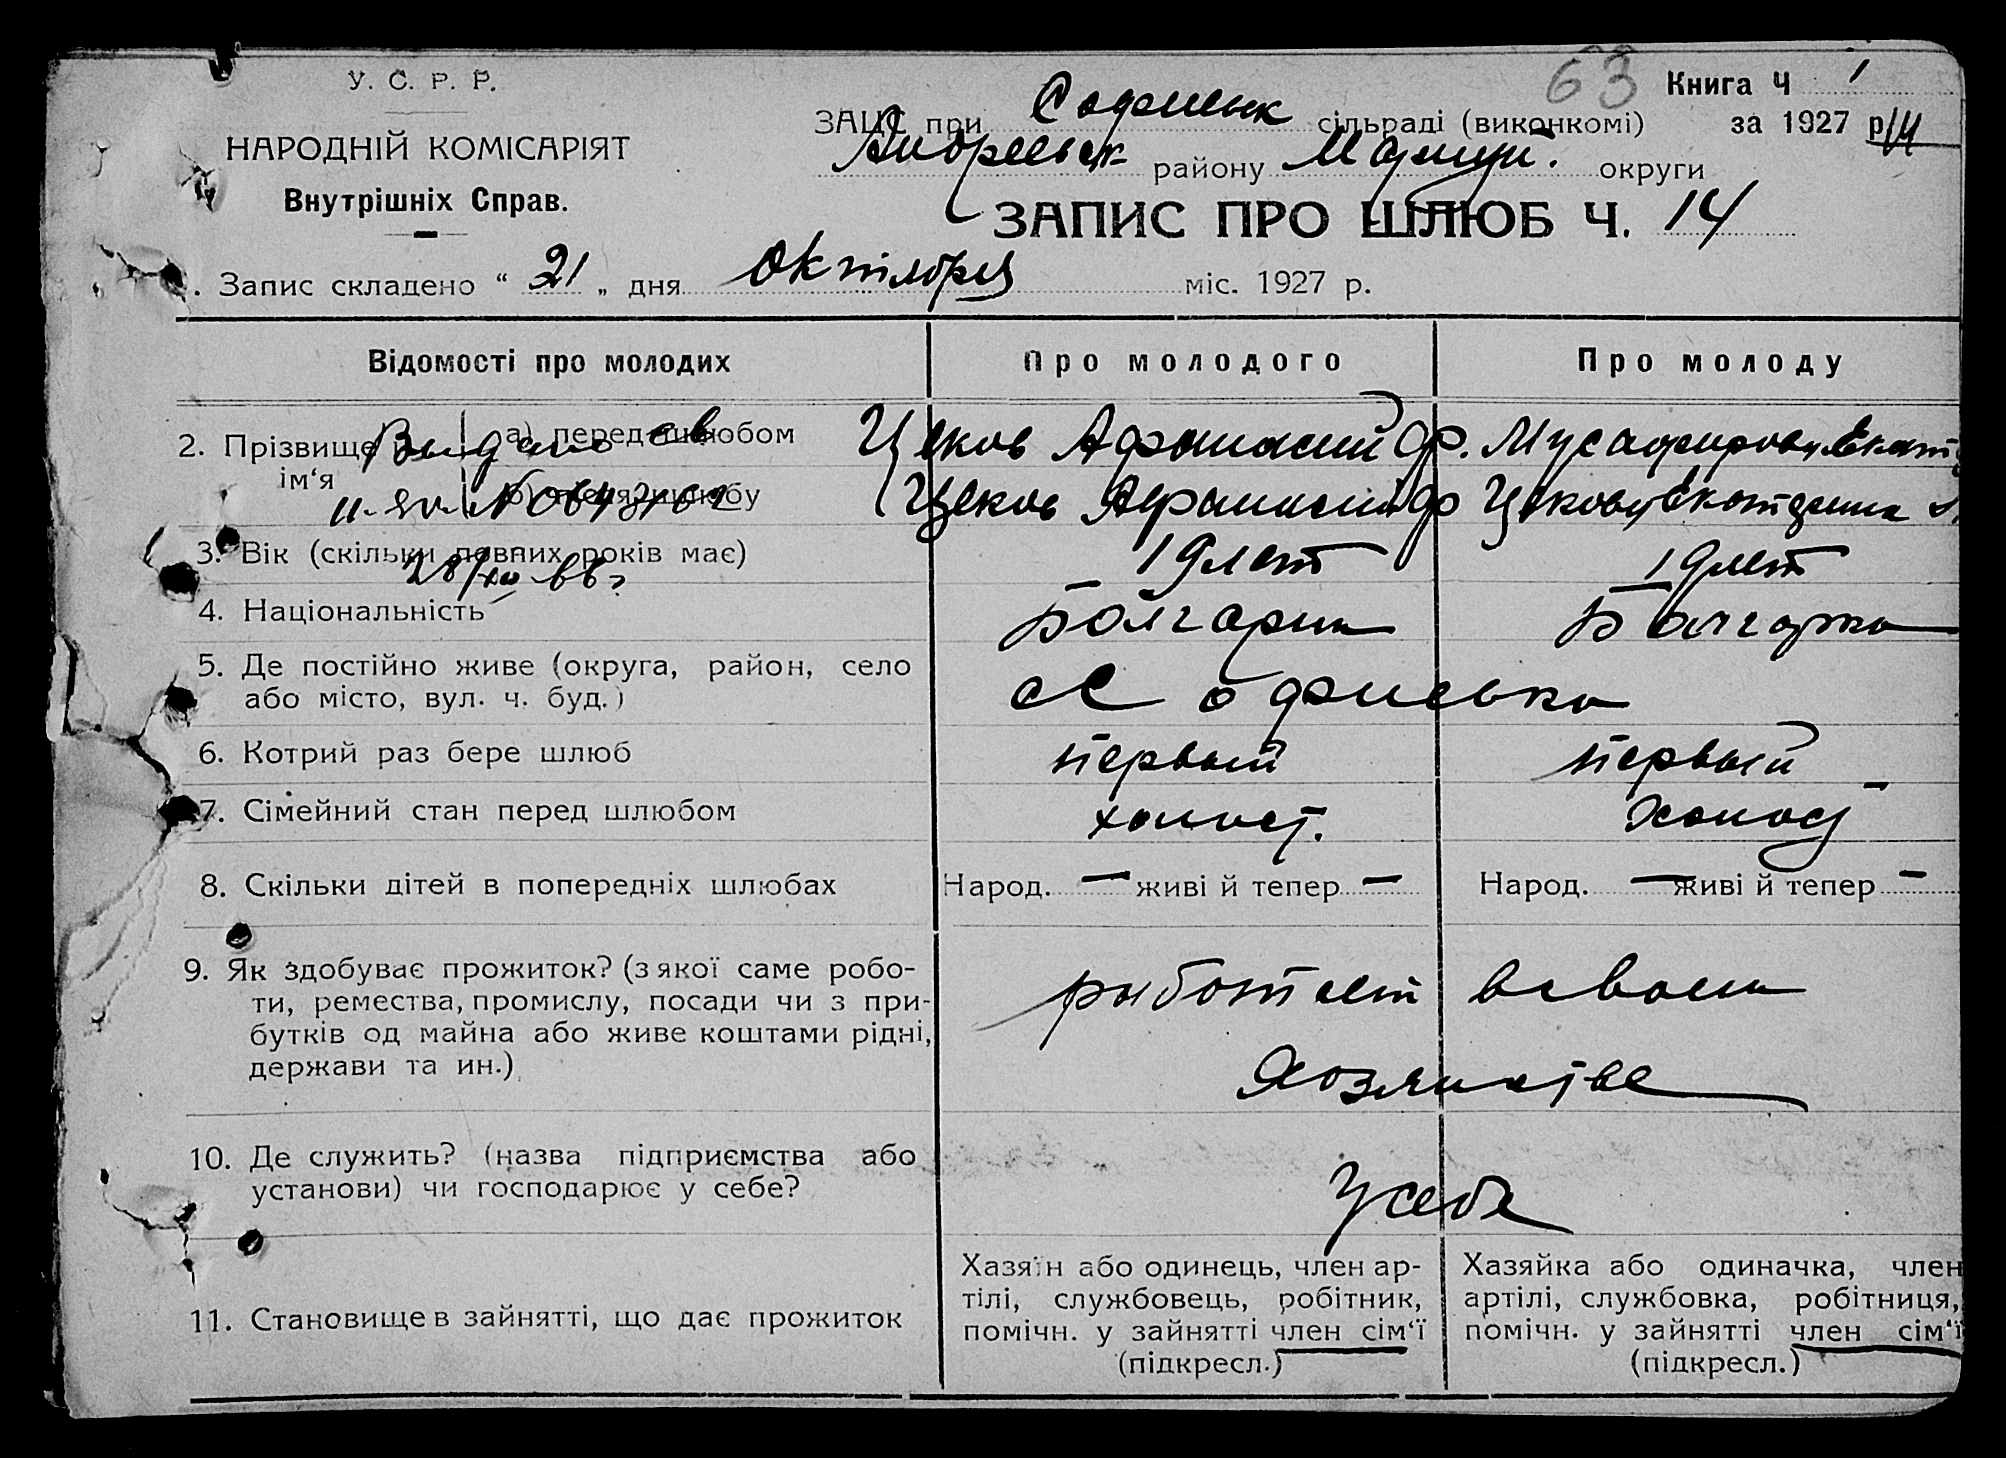 63
Книга Ч 1
У. С. Р. Р.
НАРОДНІЙ КОМІСАРІЯТ
Внутрішніх Справ.
ЗАЦС при Софиевск сільраді (виконкомі) за 1927 р.
Андреевск району Мариуп. округи
ЗАПИС ПРО ШЛЮБ Ч. 14
. Запис складено " 21 „ дня Октября міс. 1927 р.
Відомості про молодих
Про молодого
Про молоду
2. Прізвище і ім'я
а) перед шлюбом Цеков Афанасий Ф. Мусафирова Екат
б) після шлюбу Цеков Афанасий Ф Цекова Екатерина
Выдано св
3. Вік (скільки повних років має) 19 лет 19 лет
28/XII 66 г
4. Національність Болгарин Болгарка
5. Де постійно живе (округа, район, село
або місто, вул. ч. буд.) с Софиевка
6. Котрий раз бере шлюб первый первый
7. Сімейний стан перед шлюбом холост. холост
8. Скільки дітей в попередніх шлюбах Народ. — живі й тепер — Народ. — живі й тепер —
9. Як здобуває прожиток? (з якої саме робо-
ти, ремества, промислу, посади чи з при-
бутків од майна або живе коштами рідні,
держави та ин.)
работает в своем
хозяйстве
10. Де служить? (назва підприємства або
установи) чи господарює у себе?
У себя
11. Становище в зайнятті, що дає прожиток
Хазяїн або одинець, член ар-
тілі, службовець, робітник,
помічн. у зайнятті член сім'ї
(підкресл.)
Хазяйка або одиначка, член
артілі, службовка, робітниця,
помічн. у зайнятті член сім'ї
(підкресл.)